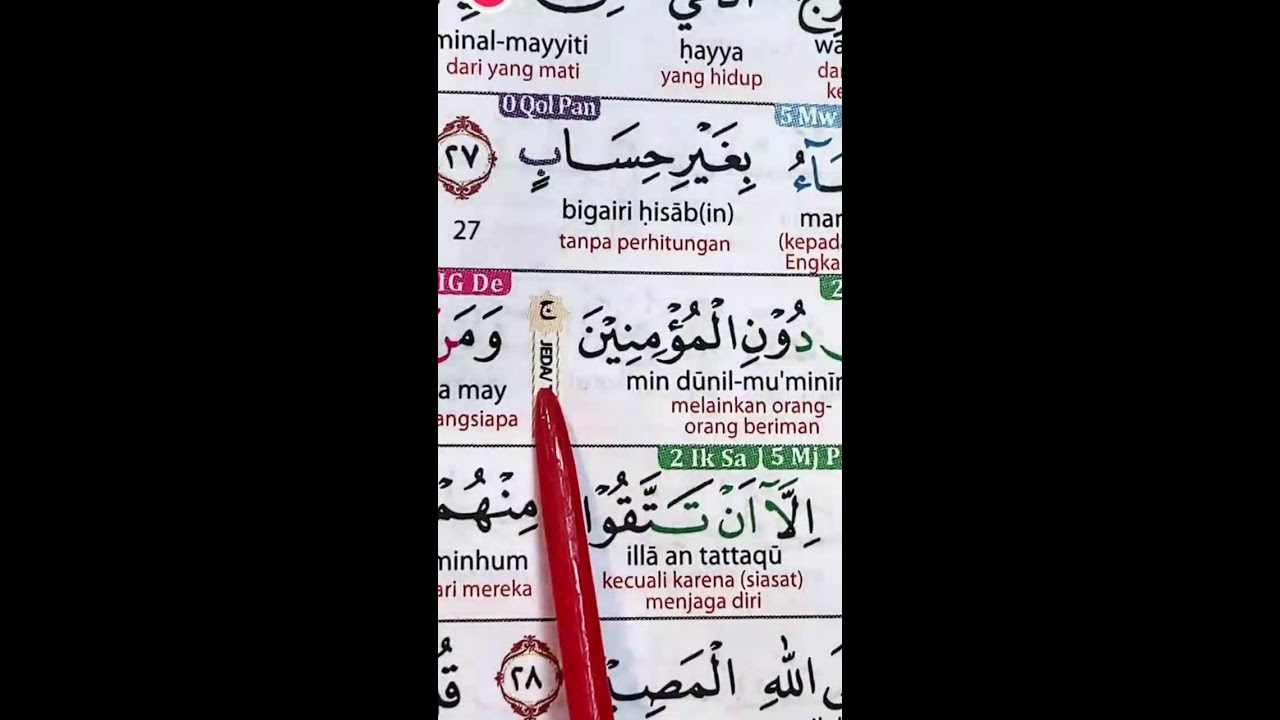 minal-mayyiti ḥayya
dari yang mati yang hidup
0 Qol Pan 5 Mw
بِغَيْرِ حِسَابٍ ٢٧
bigairi ḥisāb(in)
27
tanpa perhitungan (kepada
Engka
IG De
دُوْنِ الْمُؤْمِنِيْنَ ج وَمَنْ
JEDA/
min dūnil-mu'minīn
a may
melainkan orang-
orang beriman
angsiapa
2 Ik Sa 5 Mj P
اِلَّآ اَنْ تَتَّقُوْا مِنْهُمْ
illā an tattaqū minhum
kecuali karena (siasat)
menjaga diri
ari mereka
اللّٰهِ الْمَصِيْ ٢٨